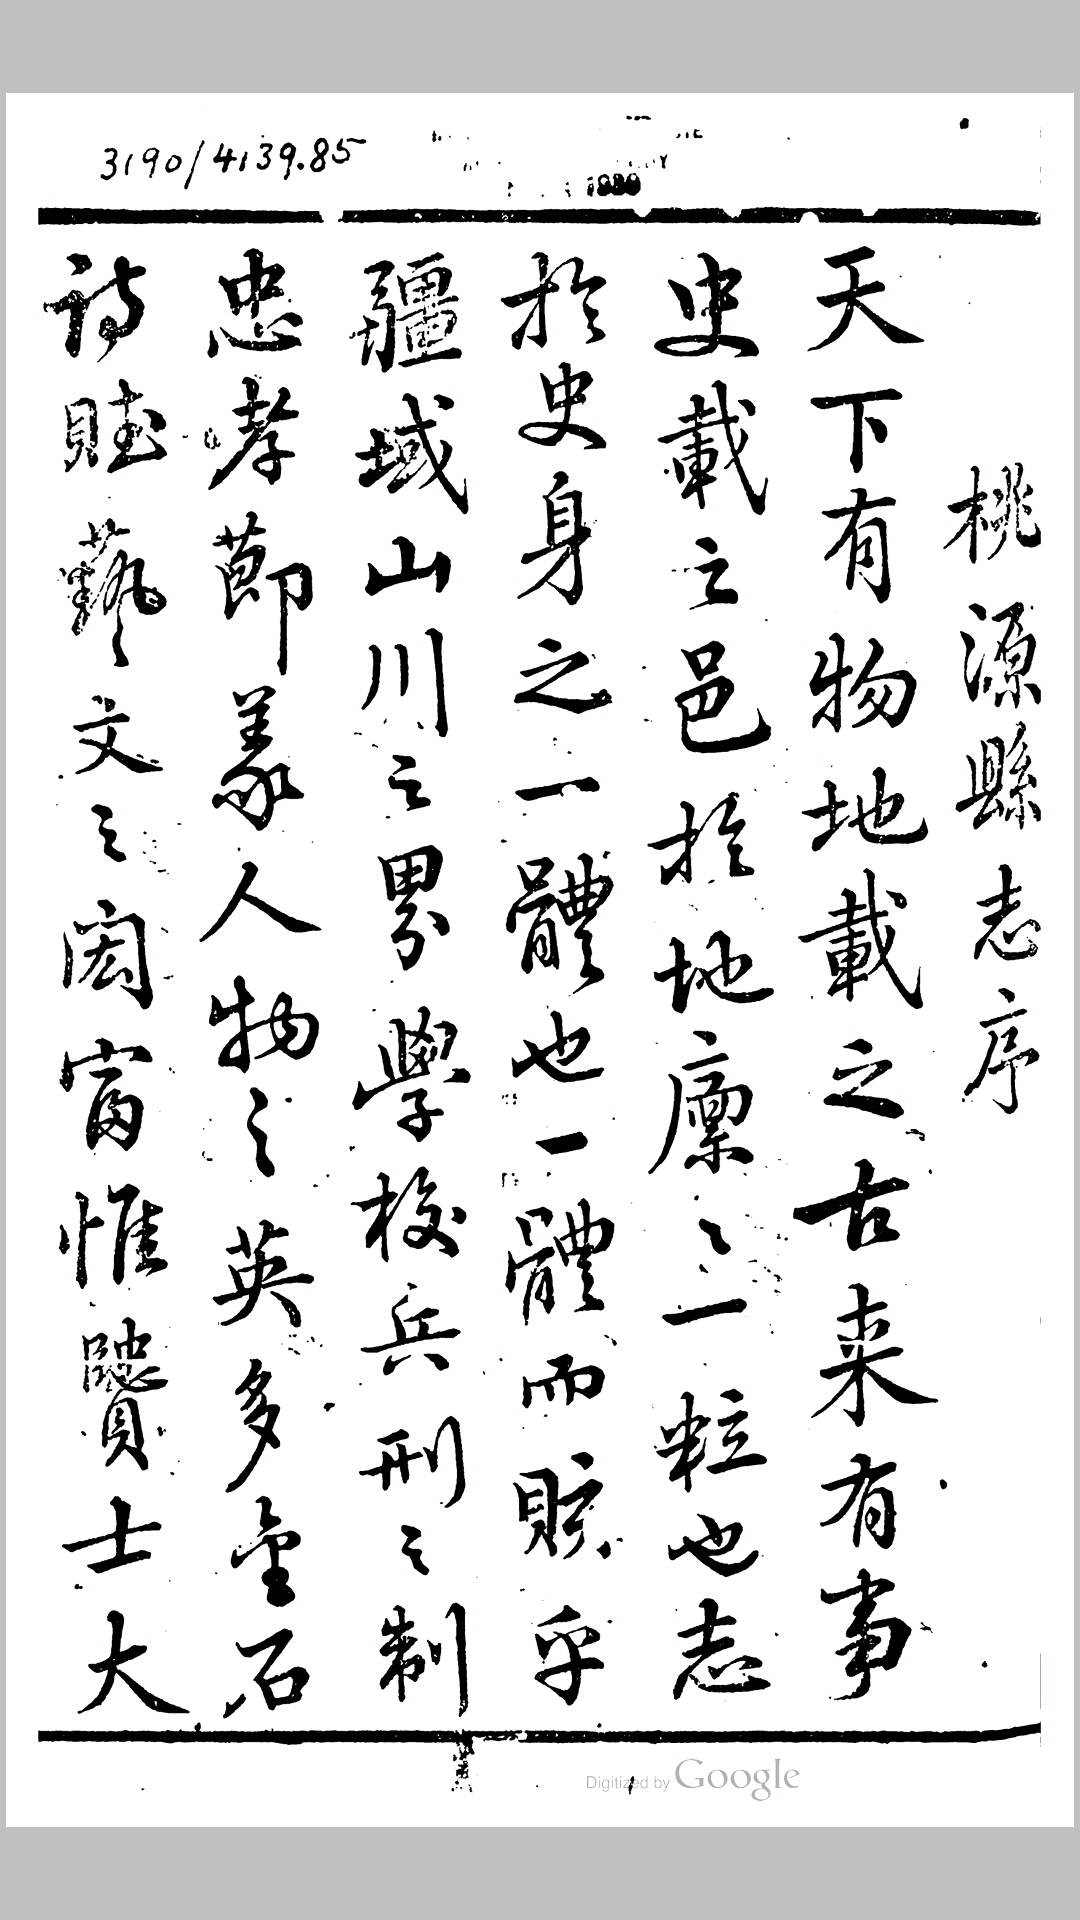 3190/4139.85
1939
桃源縣志序
天下有物地載之古来有事
史載之邑於地廪〻一粒也志
於史身之一體也一體而賅乎
疆域山川之界學校兵刑之制
忠孝節義人物之英多金石
詩賦藝文之閎富惟賢士大
Digitized by Google